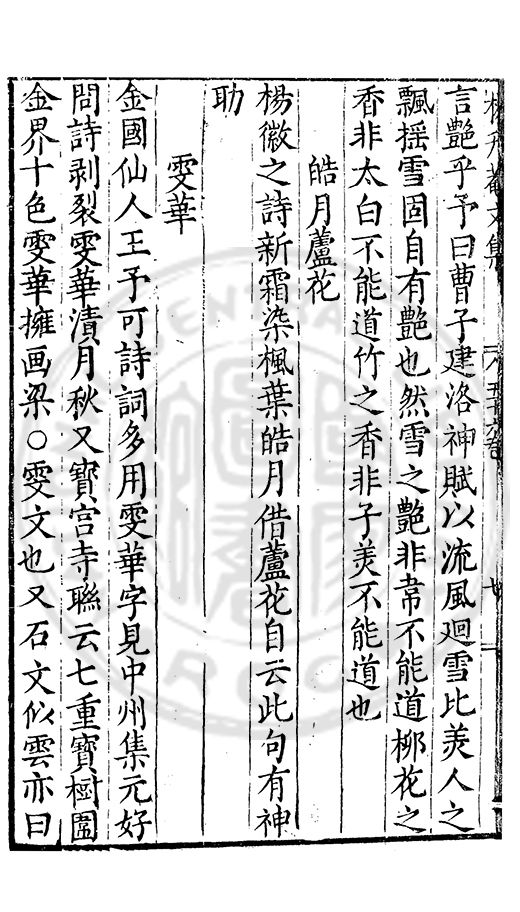 言艶乎予曰曹子建洛神賦以流風廻雪比羙人之
飄揺雪固自有艶也然雪之艶非韋不能道栁花之
香非太白不能道竹之香非子羙不能道也
皓月蘆花
楊徽之詩新霜染楓葉皓月借蘆花自云此句有神
助
雯華
金國仙人王予可詩詞多用雯華字見中州集元好
問詩剥裂雯華漬月秋又寳宫寺聮云七重寳樹圍
金界十色雯華擁画梁○雯文也又石文似雲亦曰